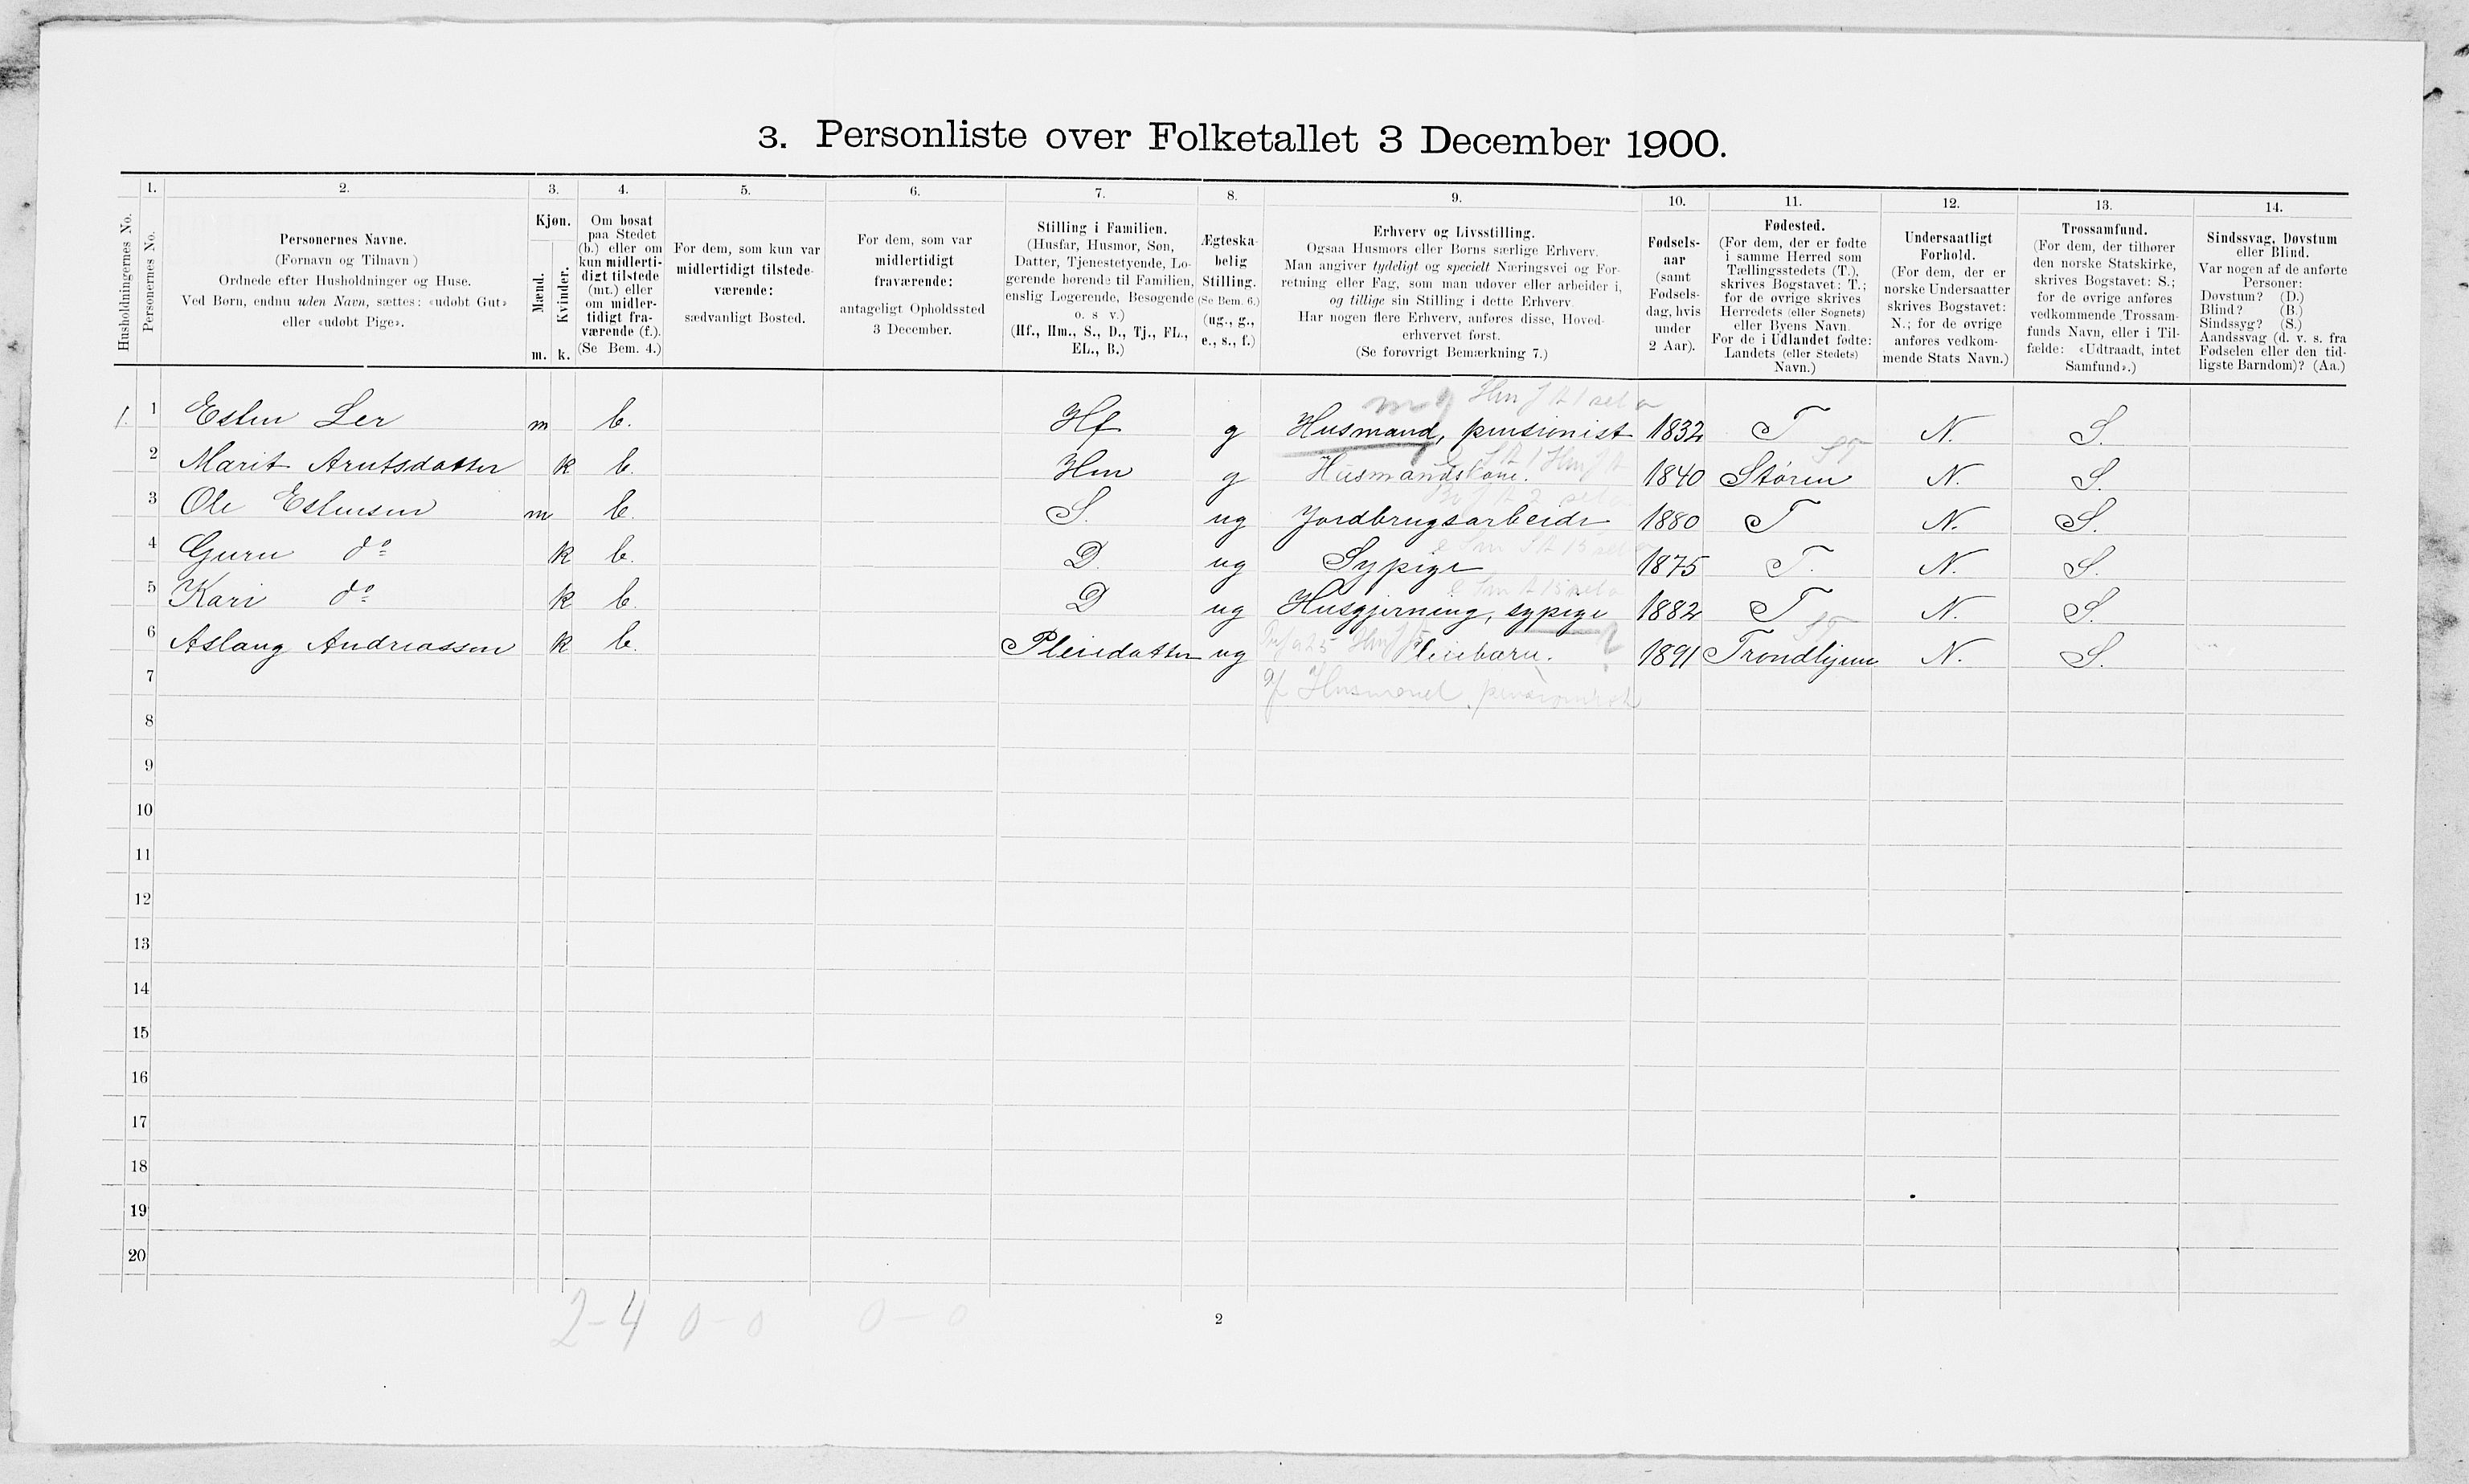 3. Personliste over Folketallet 3 December 1900.
1. 2. 3. 4. 5. 6. 7. 8. 9. 10. 11. 12. 13. 14.
Husholdningernes No.
Personernes No.
Personernes Navne.
(Fornavn og Tilnavn)
Ordnede efter Husholdninger og Huse.
Ved Børn, endnu uden Navn, sættes: «udøbt Gut»
eller «udøbt Pige».
Kjøn.
Mænd.
Kvinder.
m. k.
Om bosat
paa Stedet
(b.) eller om
kun midlerti-
digt tilstede
(mt.) eller
om midler-
tidigt fra-
værende (f.).
(Se Bem. 4.)
For dem, som kun var
midlertidigt tilstede-
værende:
sædvanligt Bosted.
For dem, som var
midlertidigt
fraværende:
antageligt Opholdssted
3 December.
Stilling i Familien.
(Husfar, Husmor, Søn,
Datter, Tjenestetyende, Lo-
gerende hørende til Familien,
enslig Logerende, Besøgende
o. s v.)
(Hf., Hm., S., D., Tj., FL.,
EL., B.)
Ægteska-
belig
Stilling.
(Se Bem. 6.)
(ug., g.,
e., s., f.)
Erhverv og Livsstilling.
Ogsaa Husmors eller Børns særlige Erhverv.
Man angiver tydeligt og specielt Næringsvei og For-
retning eller Fag, som man udøver eller arbeider i,
og tillige sin Stilling i dette Erhverv.
Har nogen flere Erhverv, anføres disse, Hoved-
erhvervet først.
(Se forøvrigt Bemærkning 7.)
Fødsels-
aar
(samt
Fødsels-
dag, hvis
under
2 Aar).
Fødested.
(For dem, der er fødte
i samme Herred som
Tællingsstedets (T.),
skrives Bogstavet: T.;
for de øvrige skrives
Herredets (eller Sognets)
eller Byens Navn.
For de i Udlandet fødte:
Landets (eller Stedets)
Navn.)
Undersaatligt
Forhold.
(For dem, der er
norske Undersaatter
skrives Bogstavet:
N.; for de øvrige
anføres vedkom-
mende Stats Navn.)
Trossamfund.
(For dem, der tilhører
den norske Statskirke,
skrives Bogstavet: S.;
for de øvrige anføres
vedkommende Trossam-
funds Navn, eller i Til-
fælde: «Udtraadt, intet
Samfund».)
Sindssvag, Døvstum
eller Blind.
Var nogen af de anførte
Personer:
Døvstum? (D.)
Blind? (B.)
Sindssyg? (S.)
Aandssvag (d. v. s. fra
Fødselen eller den tid-
ligste Barndom)? (Aa.)
1. 1 Esten Ler m b. Hf g Husmand, pensionist 1832 T N. S.
2 Marit Arntsdatter k b. Hm g Husmandskone. 1840 Støren N. S.
3 Ole Estensen m b. S. ug Jordbrugsarbeide 1880 T N. S.
4 Guru do k b. D. ug Sypige 1875 T. N. S.
5 Kari do k b. D ug Husgjerning, sypige 1882 T N. S.
6 Aslaug Andreassen k b. Pleiedatter ug Pleiebarn. 1891 Trondhjem N. S.
7 Husmand, pensionist
8
9
10
11
12
13
14
15
16
17
18
19
20
2-4 0-0 0-0
2